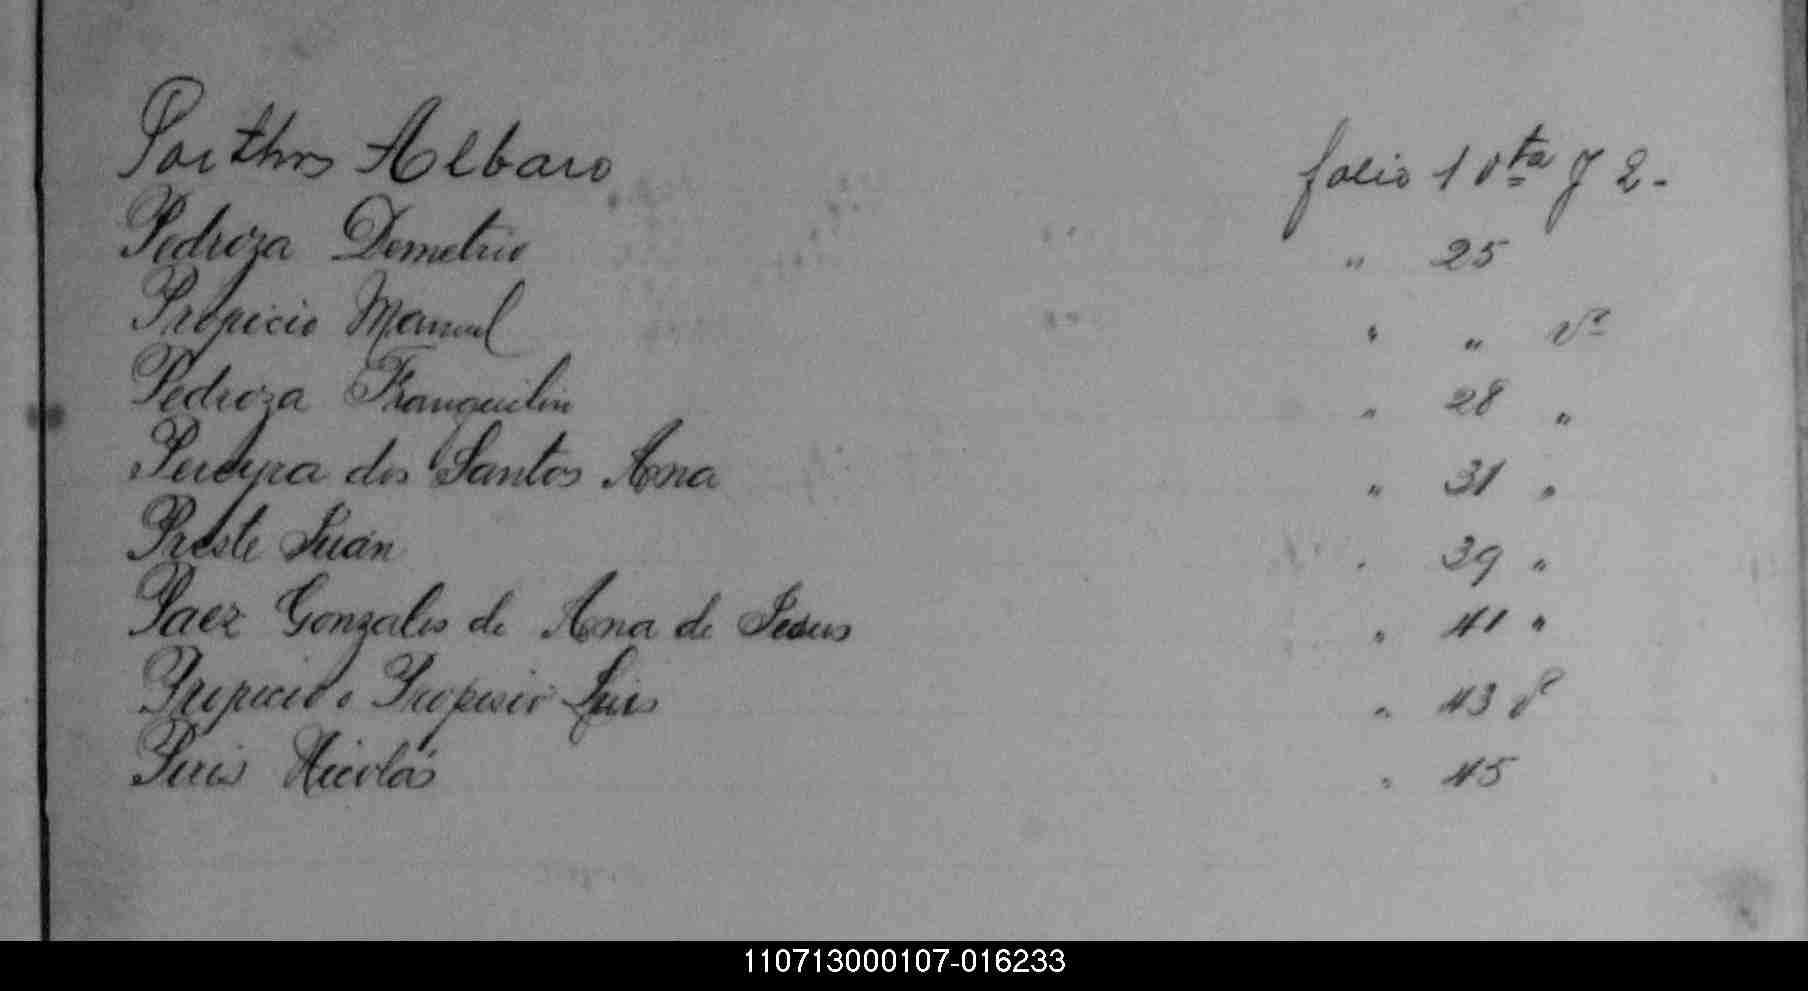 Porthos Albaro folio 1 vta y 2.
Pedroza Demetrio " 25
Propicio Manuel " " vta
Pedroza Tranquilin " 28 "
Pereyra dos Santos Ana " 31 "
Preste Juan " 39 "
Paez Gonzales de Ana de Jesus " 41 "
Propicio o Propisio Luis " 43 v
Piris Nicolás " 45
110713000107-016233